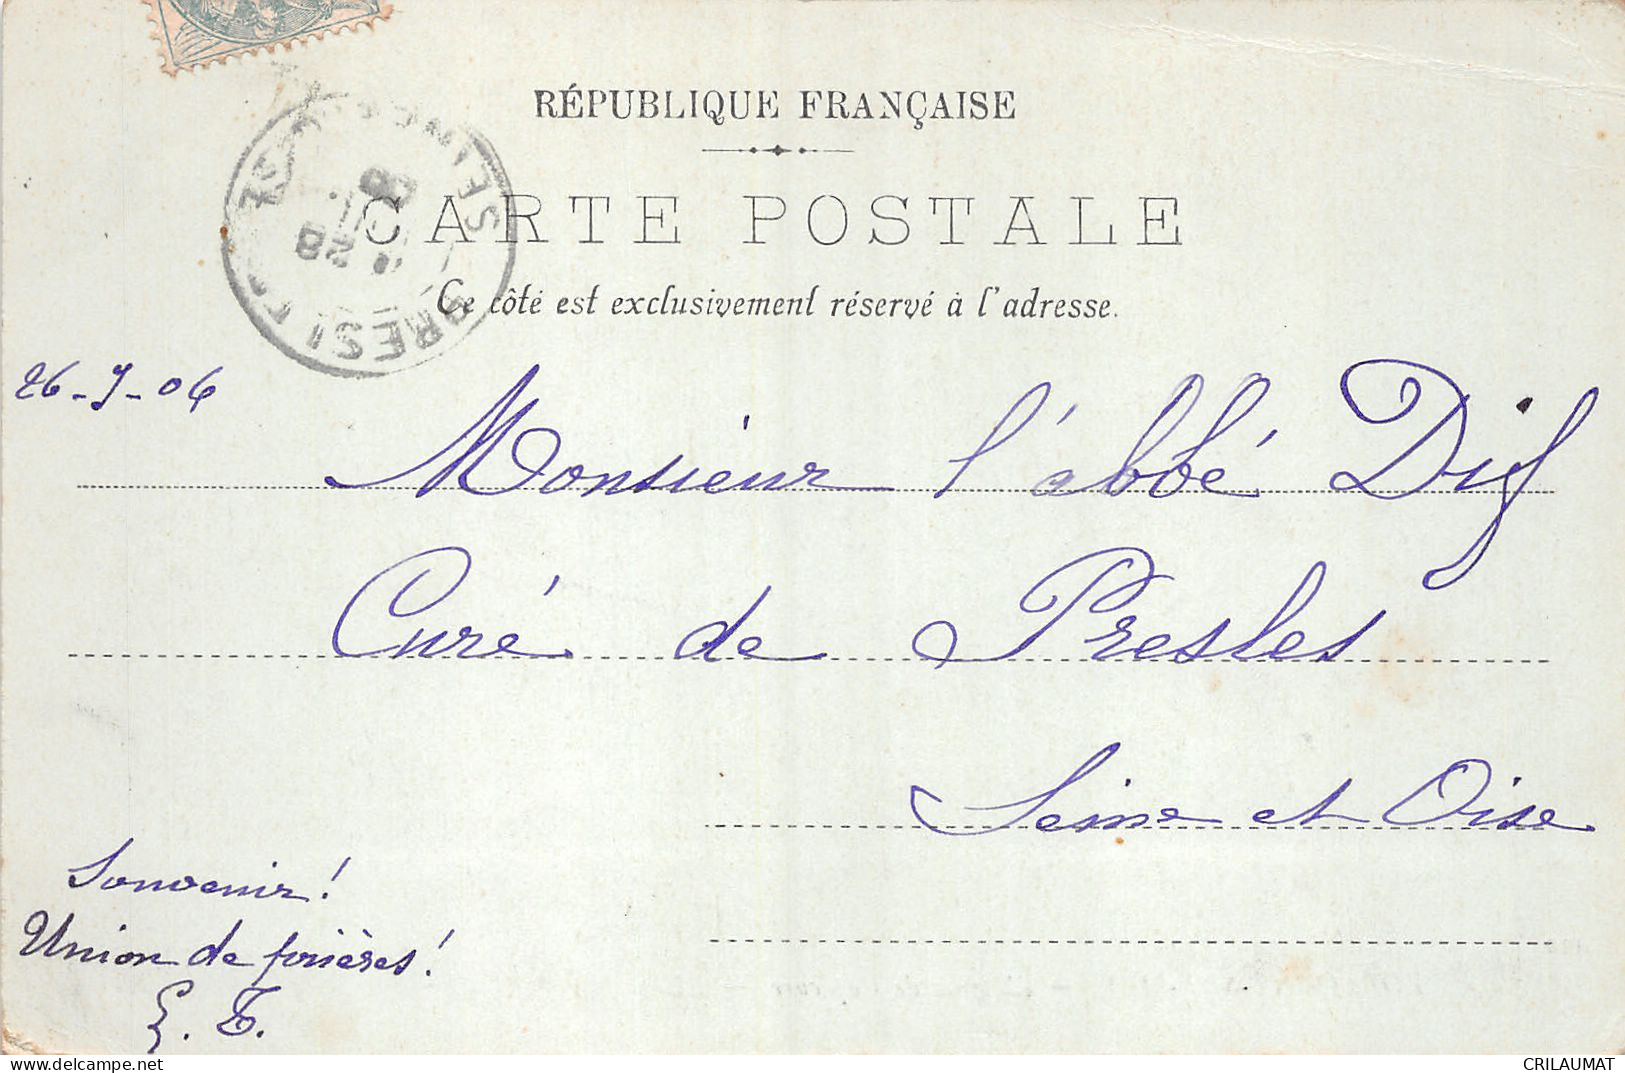 RÉPUBLIQUE FRANÇAISE
CARTE POSTALE
Ce côté est exclusivement réservé à l'adresse.
26-7-06
Monsieur l'abbé
Curé de Presles
Seine et Oise
Souvenir!
Union de prières!
E. T.
delcampe.net
CRILAUMAT